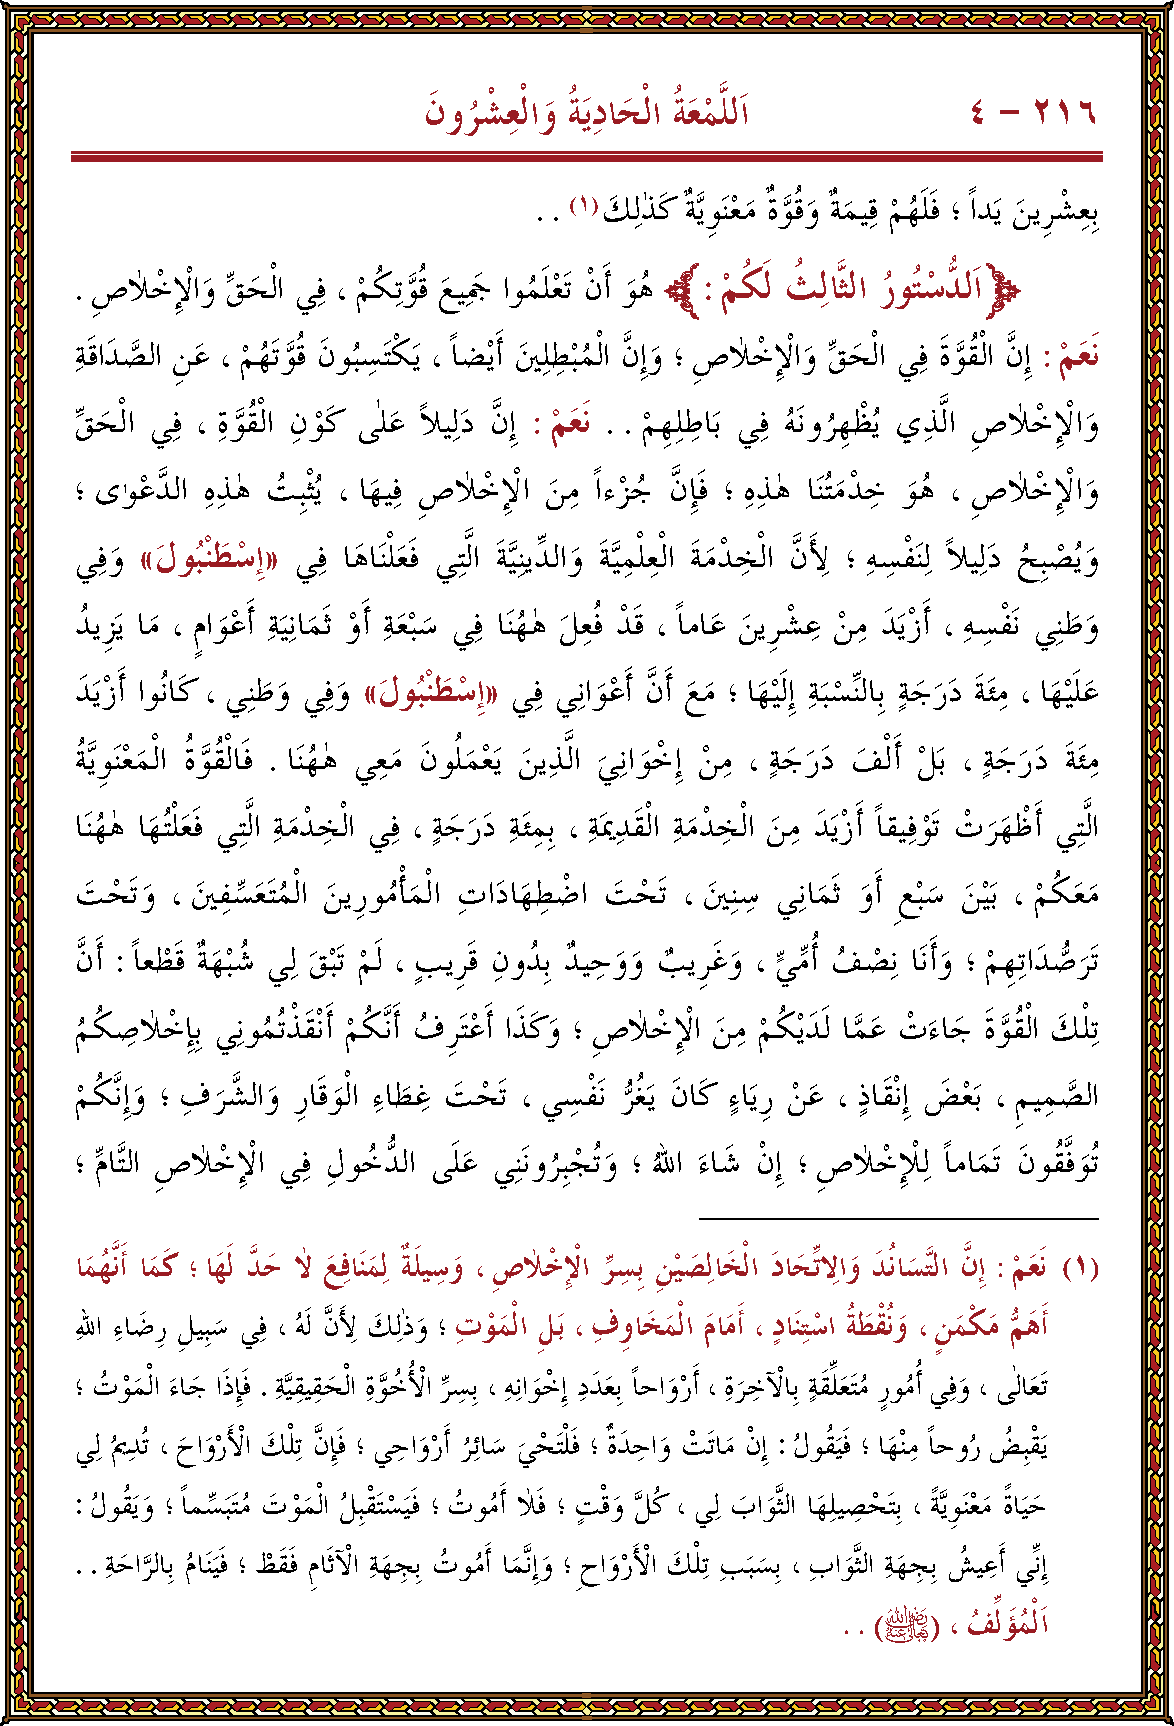 ٢١٦ - ٤ اَللَّمْعَةُ الْحَادِيَةُ وَالْعِشْرُونَ
بِعِشْرِينَ يَداً ؛ فَلَهُمْ قِيمَةٌ وَقُوَّةٌ مَعْنَوِيَّةٌ كَذٰلِكَ (١) . .
﴿اَلدُّسْتُورُ الثَّالِثُ لَكُمْ :﴾ هُوَ أَنْ تَعْلَمُوا جَمِيعَ قُوَّتِكُمْ ، فِي الْحَقِّ وَالْإِخْلاٰصِ .
نَعَمْ : إِنَّ الْقُوَّةَ فِي الْحَقِّ وَالْإِخْلاٰصِ ؛ وَإِنَّ الْمُبْطِلِينَ أَيْضاً ، يَكْتَسِبُونَ قُوَّتَهُمْ ، عَنِ الصَّدَاقَةِ
وَالْإِخْلاٰصِ الَّذِي يُظْهِرُونَهُ فِي بَاطِلِهِمْ . . نَعَمْ : إِنَّ دَلِيلاً عَلٰى كَوْنِ الْقُوَّةِ ، فِي الْحَقِّ
وَالْإِخْلاٰصِ ، هُوَ خِدْمَتُنَا هٰذِهِ ؛ فَإِنَّ جُزْءاً مِنَ الْإِخْلاٰصِ فِيهَا ، يُثْبِتُ هٰذِهِ الدَّعْوٰى ؛
وَيُصْبِحُ دَلِيلاً لِنَفْسِهِ ؛ لِأَنَّ الْخِدْمَةَ الْعِلْمِيَّةَ وَالدِّينِيَّةَ الَّتِي فَعَلْنَاهَا فِي «إِسْطَنْبُولَ» وَفِي
وَطَنِي نَفْسِهِ ، أَزْيَدَ مِنْ عِشْرِينَ عَاماً ، قَدْ فُعِلَ هٰهُنَا فِي سَبْعَةِ أَوْ ثَمَانِيَةِ أَعْوَامٍ ، مَا يَزِيدُ
عَلَيْهَا ، مِئَةَ دَرَجَةٍ بِالنِّسْبَةِ إِلَيْهَا ؛ مَعَ أَنَّ أَعْوَانِي فِي «إِسْطَنْبُولَ» وَفِي وَطَنِي ، كَانُوا أَزْيَدَ
مِئَةَ دَرَجَةٍ ، بَلْ أَلْفَ دَرَجَةٍ ، مِنْ إِخْوَانِيَ الَّذِينَ يَعْمَلُونَ مَعِي هٰهُنَا . فَالْقُوَّةُ الْمَعْنَوِيَّةُ
الَّتِي أَظْهَرَتْ تَوْفِيقاً أَزْيَدَ مِنَ الْخِدْمَةِ الْقَدِيمَةِ ، بِمِئَةِ دَرَجَةٍ ، فِي الْخِدْمَةِ الَّتِي فَعَلْتُهَا هٰهُنَا
مَعَكُمْ ، بَيْنَ سَبْعِ وَأَ ثَمَانِي سِنِينَ ، تَحْتَ اضْطِهَادَاتِ الْمَأْمُورِينَ الْمُتَعَسِّفِينَ ، وَتَحْتَ
تَرَصُّدَاتِهِمْ ؛ وَأَنَا نِصْفُ أُمِّيٍّ ، وَغَرِيبٌ وَوَحِيدٌ بِدُونِ قَرِيبٍ ، لَمْ تَبْقَ لِي شُبْهَةٌ قَطْعاً : أَنَّ
تِلْكَ الْقُوَّةَ جَاءَتْ عَمَّا لَدَيْكُمْ مِنَ الْإِخْلاٰصِ ؛ وَكَذَا أَعْتَرِفُ أَنَّكُمْ أَنْقَذْتُمُونِي بِإِخْلاٰصِكُمُ
الصَّمِيمِ ، بَعْضَ إِنْقَاذٍ ، عَنْ رِيَاءٍ كَانَ يَغُرُّ نَفْسِي ، تَحْتَ غِطَاءِ الْوَقَارِ وَالشَّرَفِ ؛ وَإِنَّكُمْ
تُوَفَّقُونَ تَمَاماً لِلْإِخْلاٰصِ ؛ إِنْ شَاءَ اللهُ ؛ وَتُجْبِرُونَنِي عَلَى الدُّخُولِ فِي الْإِخْلاٰصِ التَّامِّ ؛
(١) نَعَمْ : إِنَّ التَّسَانُدَ وَالِاتِّحَادَ الْخَالِصَيْنِ بِسِرِّ الْإِخْلاٰصِ ، وَسِيلَةٌ لِمَنَافِعَ لاٰ حَدَّ لَهَا ؛ كَمَا أَنَّهُمَا
أَهَمُّ مَكْمَنٍ ، وَنُقْطَةُ اسْتِنَادٍ ، أَمَامَ الْمَخَاوِفِ ، بَلِ الْمَوْتِ ؛ وَذٰلِكَ لِأَنَّ لَهُ ، فِي سَبِيلِ رِضَاءِ اللهِ
تَعَالٰى ، وَفِي أُمُورٍ مُتَعَلِّقَةٍ بِالْآخِرَةِ ، أَرْوَاحاً بِعَدَدِ إِخْوَانِهِ ، بِسِرِّ الْأُخُوَّةِ الْحَقِيقِيَّةِ . فَإِذَا جَاءَ الْمَوْتُ ؛
يَقْبِضُ رُوحاً مِنْهَا ؛ فَيَقُولُ : إِنْ مَاتَتْ وَاحِدَةٌ ؛ فَلْتَحْيَ سَائِرُ أَرْوَاحِي ؛ فَإِنَّ تِلْكَ الْأَرْوَاحَ ، تُدِيمُ لِي
حَيَاةً مَعْنَوِيَّةً ، بِتَحْصِيلِهَا الثَّوَابَ لِي ، كُلَّ وَقْتٍ ؛ فَلاٰ أَمُوتُ ؛ فَيَسْتَقْبِلُ الْمَوْتَ مُتَبَسِّماً ؛ وَيَقُولُ :
إِنِّي أَعِيشُ بِجِهَةِ الثَّوَابِ ، بِسَبَبِ تِلْكَ الْأَرْوَاحِ ؛ وَإِنَّمَا أَمُوتُ بِجِهَةِ الْآثَامِ فَقَطْ ؛ فَيَنَامُ بِالرَّاحَةِ . .
اَلْمُؤَلِّفُ ، (رضي الله تعالى عنه) . .